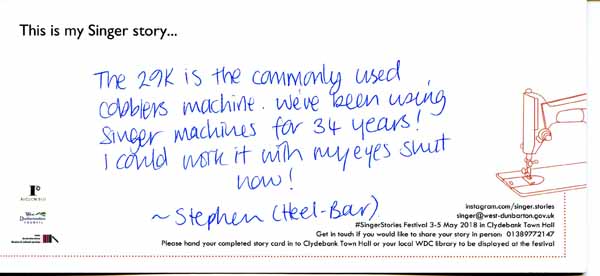 This is my Singer story...
The 29K is the commonly used
cobblers machine. We've been using
Singer machines for 34 years!
I could work it with my eyes shut
now!
~ Stephen (Heel-Bar)
West
Dunbartonshire
COUNCIL
instagram.com/singer.stories
singer@west-dunbarton.gov.uk
#SingerStories Festival 3-5 May 2018 in Clydebank Town Hall
Get in touch if you would like to share your story in person: 01389772147
Please hand your completed story card in to Clydebank Town Hall or your local WDC library to be displayed at the festival